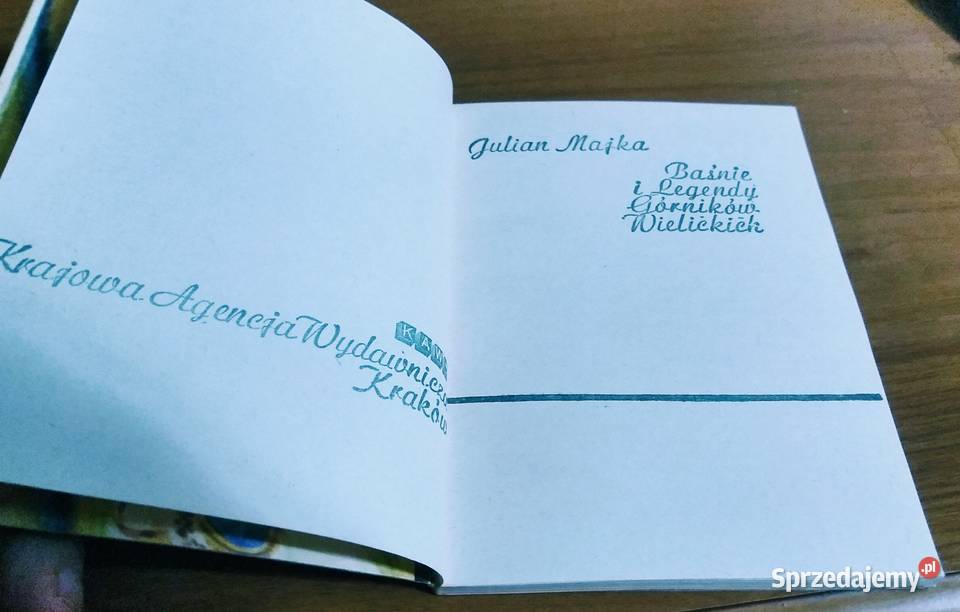 Krajowa Agencja Wydawnicza
KAW
Kraków
Julian Majka
Baśnie
i Legendy
Górników
Wielićkićh
Sprzedajemy.pl